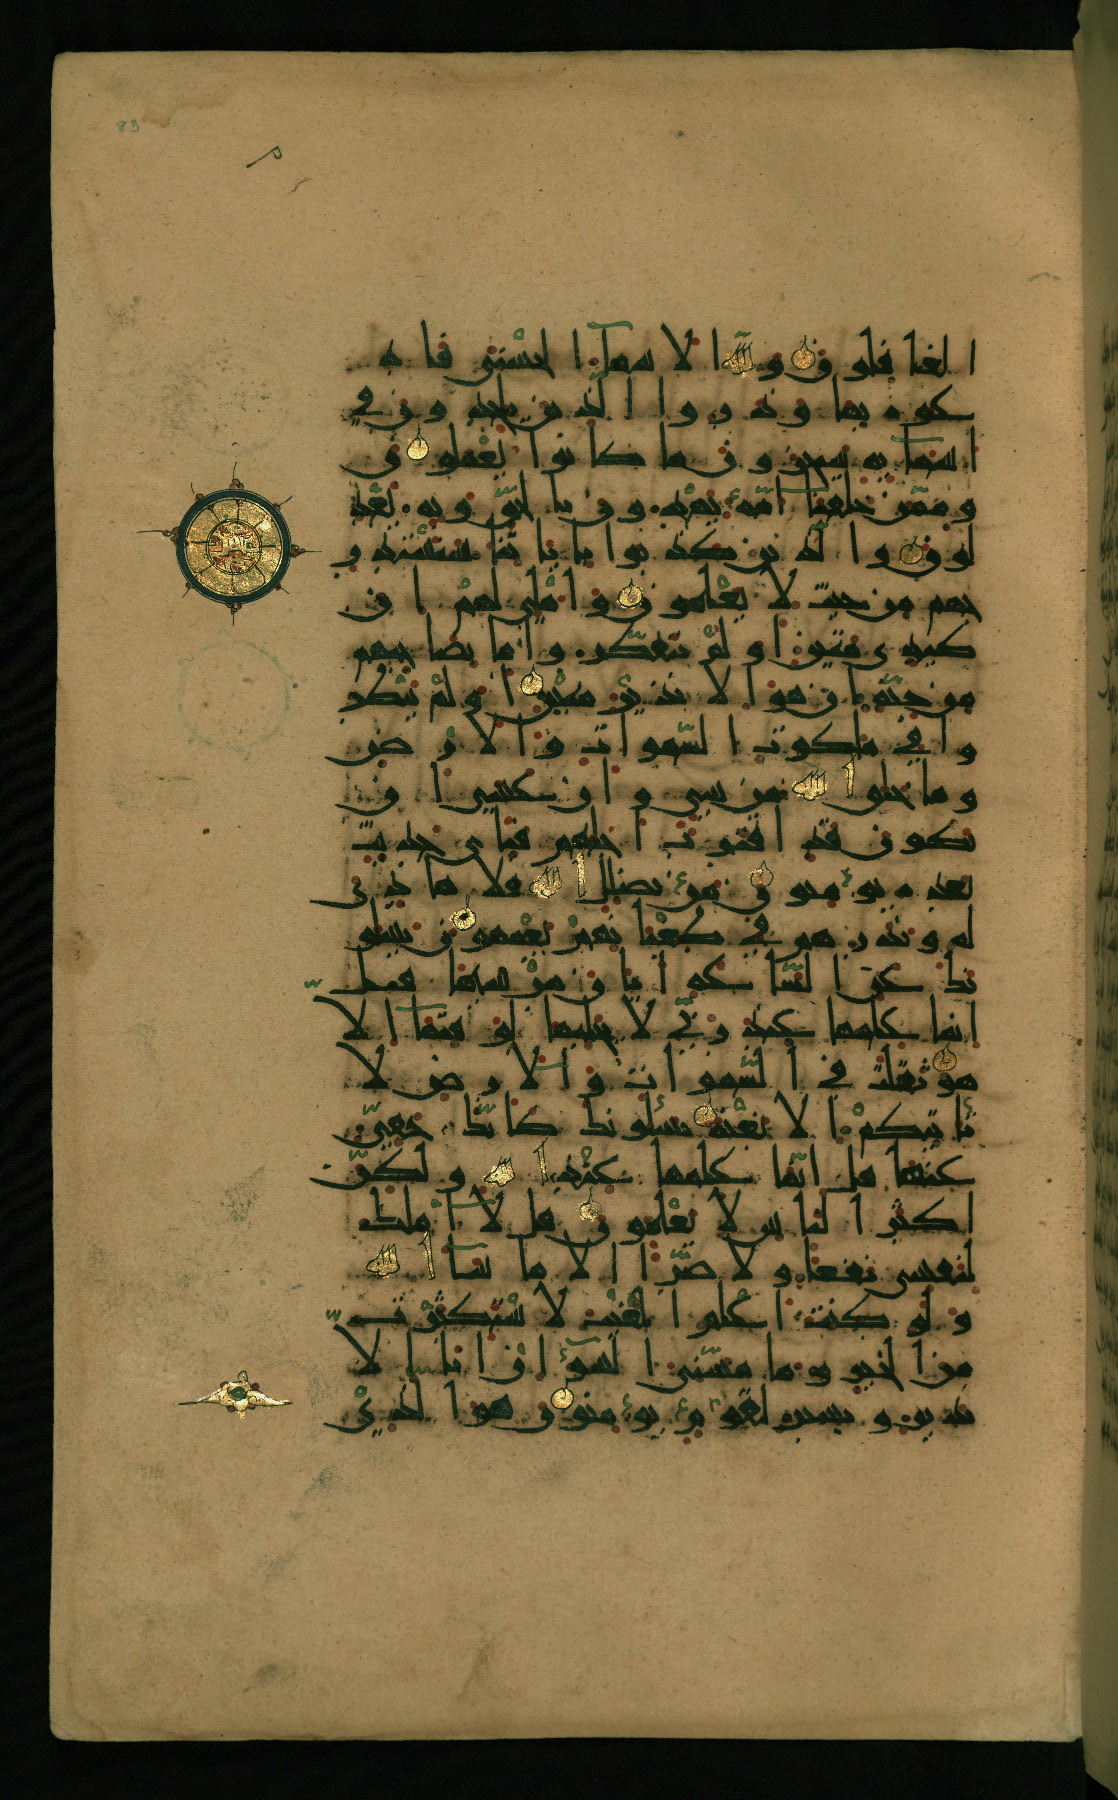 83
الغفلون ولله الاسما الحسنى فاد
عوه بها وذروا الذين يلحدون في
اسمآيه سيجزون ما كانوا يعملون
وممّن خلقنا امّة يهدون بالحقّ وبه يعد
لون والّذين كذبوا باياتنا سنستدر
جهم من حيث لا يعلمون واملي لهم ان
كيدي متين اولم يتفكّروا ما بصاحبهم
من جنّة ان هو الا نذير مبين اولم ينظر
وا في ملكوت السّموات والارض
وما خلق الله من شي وان عسى ان
يكون قد اقترب اجلهم فباي حديث
بعده يؤمنون من يضلل الله فلا هادي
له ونذرهم في طغيانهم يعمهون يسلو
نك عن السّاعة ايان مرسىها قل
انّما علمها عند ربّي لا يجليها لوقتها الا
هو ثقلت في السّموات والارض لا
تاتيكم الا بغتة يسئلونك كانّك حفيّ
عنها قل انّما علمها عند الله ولكنّ
اكثر الناس لا يعلمون قل لا املك
لنفسي نفعا ولا ضرّا الا ما شآ الله
ولو كنت اعلم الغيب لاستكثرت
من الخير وما مسّني السوء ان انا الا
نذير وبشير لقوم يؤمنون هو الذي